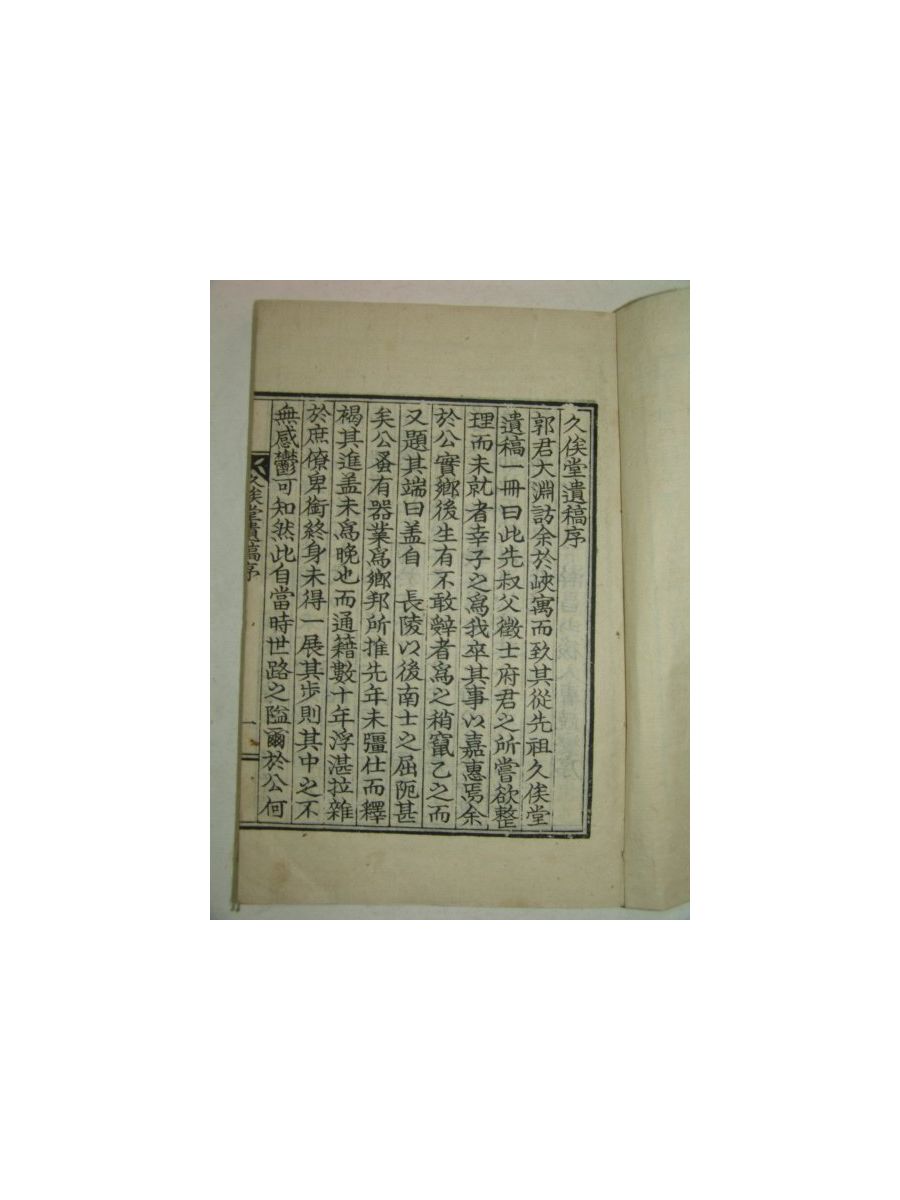 久俟堂遺稿序
郭君大淵訪余於峽寓而致其從先祖久俟堂
遺稿一冊曰此先叔父徵士府君之所嘗欲整
理而未就者幸子之爲我卒其事以嘉惠焉余
於公實鄕後生有不敢辤者爲之稍竄乙之而
又題其端曰盖自　長陵以後南士之屈阨甚
矣公蚤有器業爲鄕邦所推先年未彊仕而釋
褐其進盖未爲晩也而通籍數十年浮湛拉雜
於庶僚卑銜終身未得一展其步則其中之不
無感鬱可知然此自當時世路之隘爾於公何
久俟堂遺稿序
一